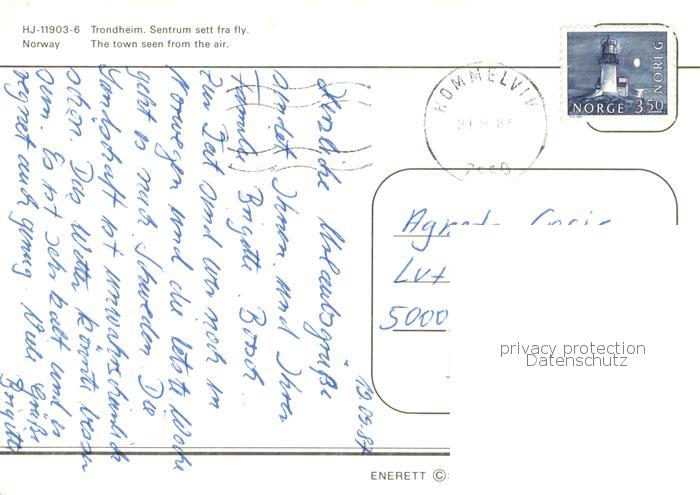 HJ-11903-6 Trondheim. Sentrum sett fra fly.
Norway The town seen from the air.
HOMMELVIK
NORGE 350
NOREG
12.09.87
Herzliche Urlaubsgrüße
sendet Ihnen und Ihrer
Familie Brigitte
Zur Zeit sind wir noch in
Norwegen und die letzte Woche
geht es nach Schweden. Die
Landschaft ist unwahrscheinlich
schön. Das Wetter könnte besser
sein. Es ist sehr kalt und es
regnet auch genug. Viele Grüße
Brigitte
5000
privacy protection
Datenschutz
ENERETT ©